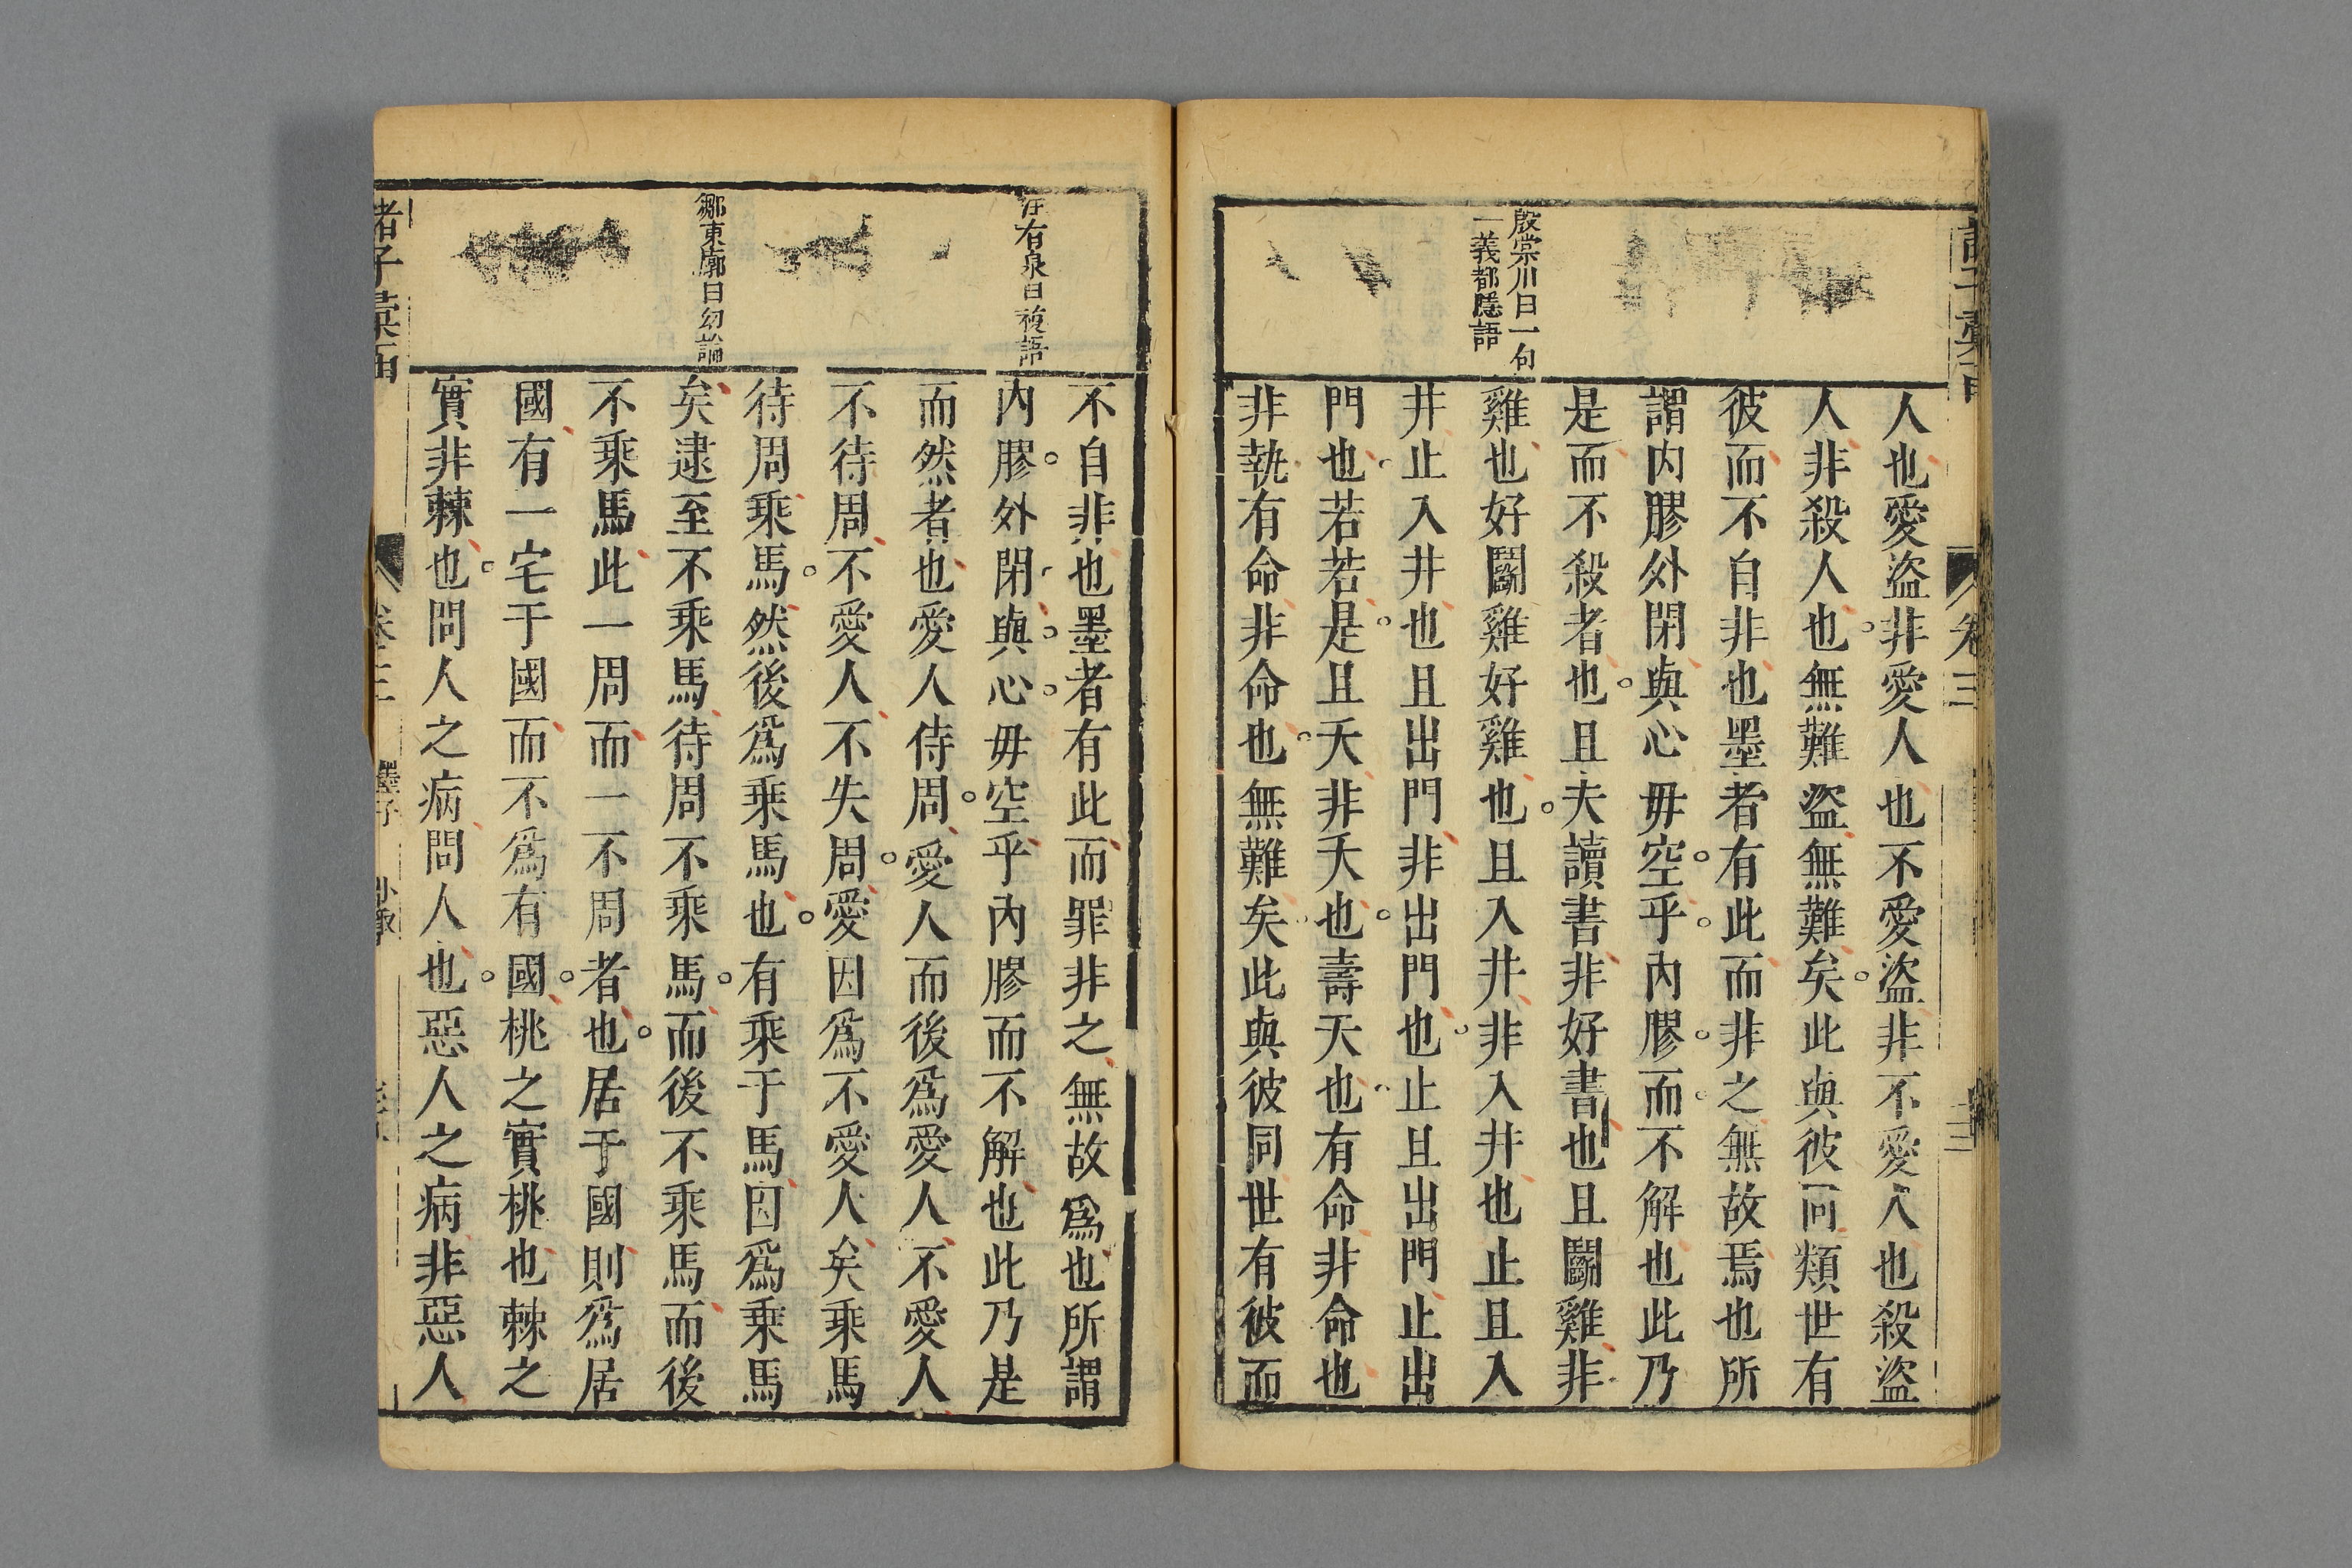 卷三
殷棠川曰一句
一義都隱語
人也愛盜非愛人也不愛盜非不愛人也殺盜
人非殺人也無難盜無難矣此與彼同類世有
彼而不自非也墨者有此而非之無故焉也所
謂內膠外閉與心毋空乎內膠而不解也此乃
是而不殺者也且夫讀書非好書也且鬭雞非
雞也好鬭雞好雞也且入井非入井也止且入
井止入井也且出門非出門也止且出門止出
門也若若是且夭非夭也壽夭也有命非命也
非執有命非命也無難矣此與彼同世有彼而
汪右泉曰複語
鄒東廓曰幻論
不自非也墨者有此而罪非之無故爲也所謂
內膠外閉與心毋空乎內膠而不解也此乃是
而然者也愛人侍周愛人而後爲愛人不愛人
不待周不愛人不失周愛因爲不愛人矣乘馬
待周乘馬然後爲乘馬也有乘于馬因爲乘馬
矣逮至不乘馬待周不乘馬而後不乘馬而後
不乘馬此一周而一不周者也居于國則爲居
國有一宅于國而不爲有國桃之實桃也棘之
實非棘也問人之病問人也惡人之病非惡人
墨子